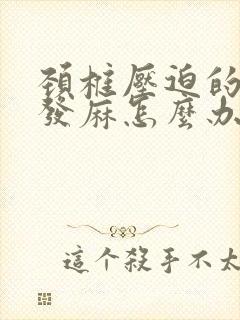 頚椎壓迫的
發麻怎麼办
這个殺手不太